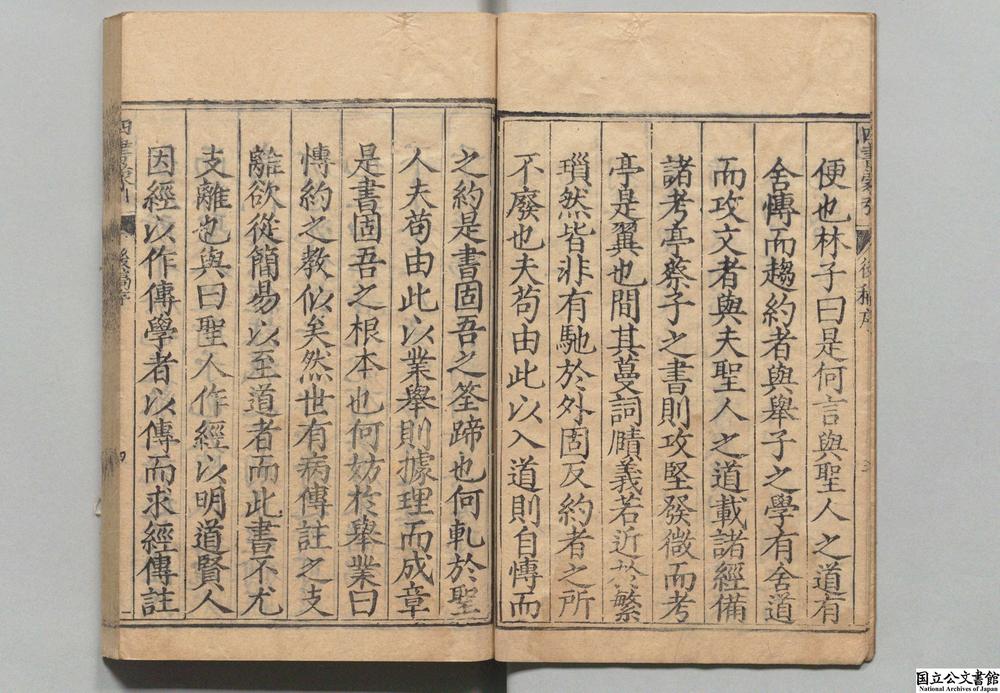 便也林子曰是何言與聖人之道有
舍慱而趨約者與舉子之學有舍道
而攻文者與夫聖人之道載諸經備
諸考亭蔡子之書則攻堅發微而考
亭是翼也間其蔓詞賾義若近於繁
瑣然皆非有馳於外固反約者之所
不廢也夫苟由此以入道則自慱而
之約是書固吾之筌蹄也何軋於聖
人夫苟由此以業舉則據理而成章
是書固吾之根本也何妨於舉業曰
慱約之教似矣然世有病傳註之支
離欲從簡易以至道者而此書不尤
支離也與曰聖人作經以明道賢人
因經以作傳學者以傳而求經傳註
四書蒙引
後稿序
四
国立公文書館
National Archives of Japan